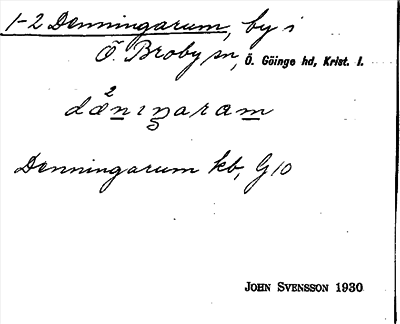 1-2 Denningarum, by i
Ö. Broby sn, Ö. Göinge hd, Krist. l.
dænıŋaram
Denningarum kb, G10
JOHN SVENSSON 1930